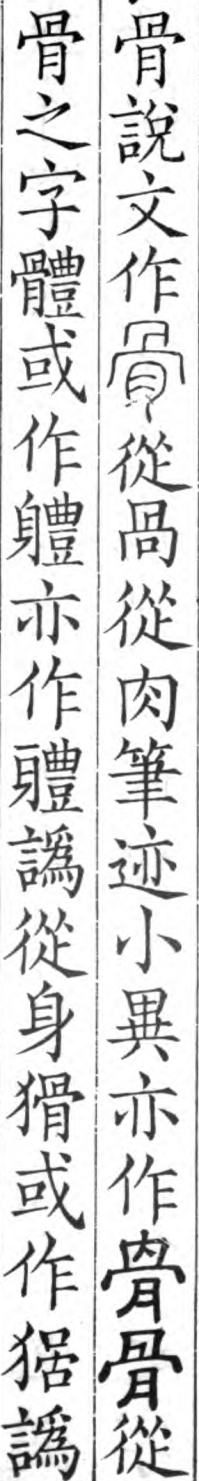 骨說文作𩨑從咼從肉筆迹小異亦作骨骨從
骨之字體或作軆亦作軆譌從身猾或作㨿譌